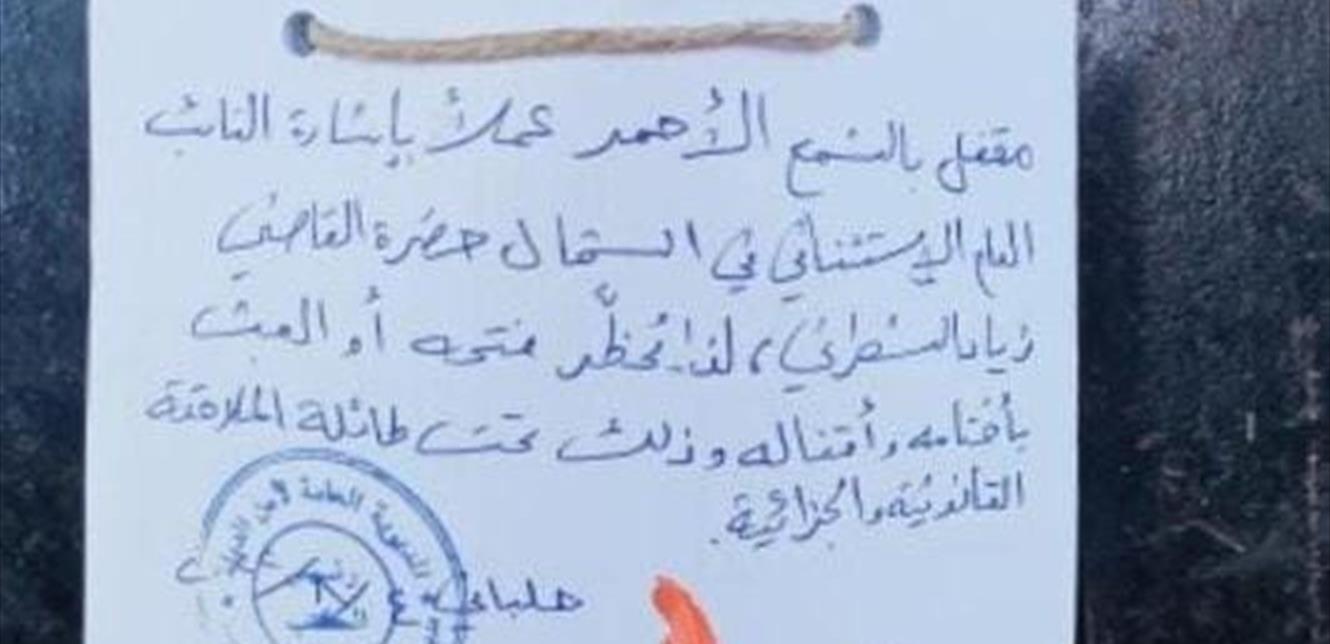 مقفل بالشمع الأحمر عملاً بإشارة النائب
العام الإستئنافي في الشمال حضرة القاضي
زياد الشعراني، لذا يُحظّر فتحه أو العبث
بأختامه وأقفاله وذلك تحت طائلة الملاحقة
القانونية والجزائية.
المديرية العامة لأمن الدولة